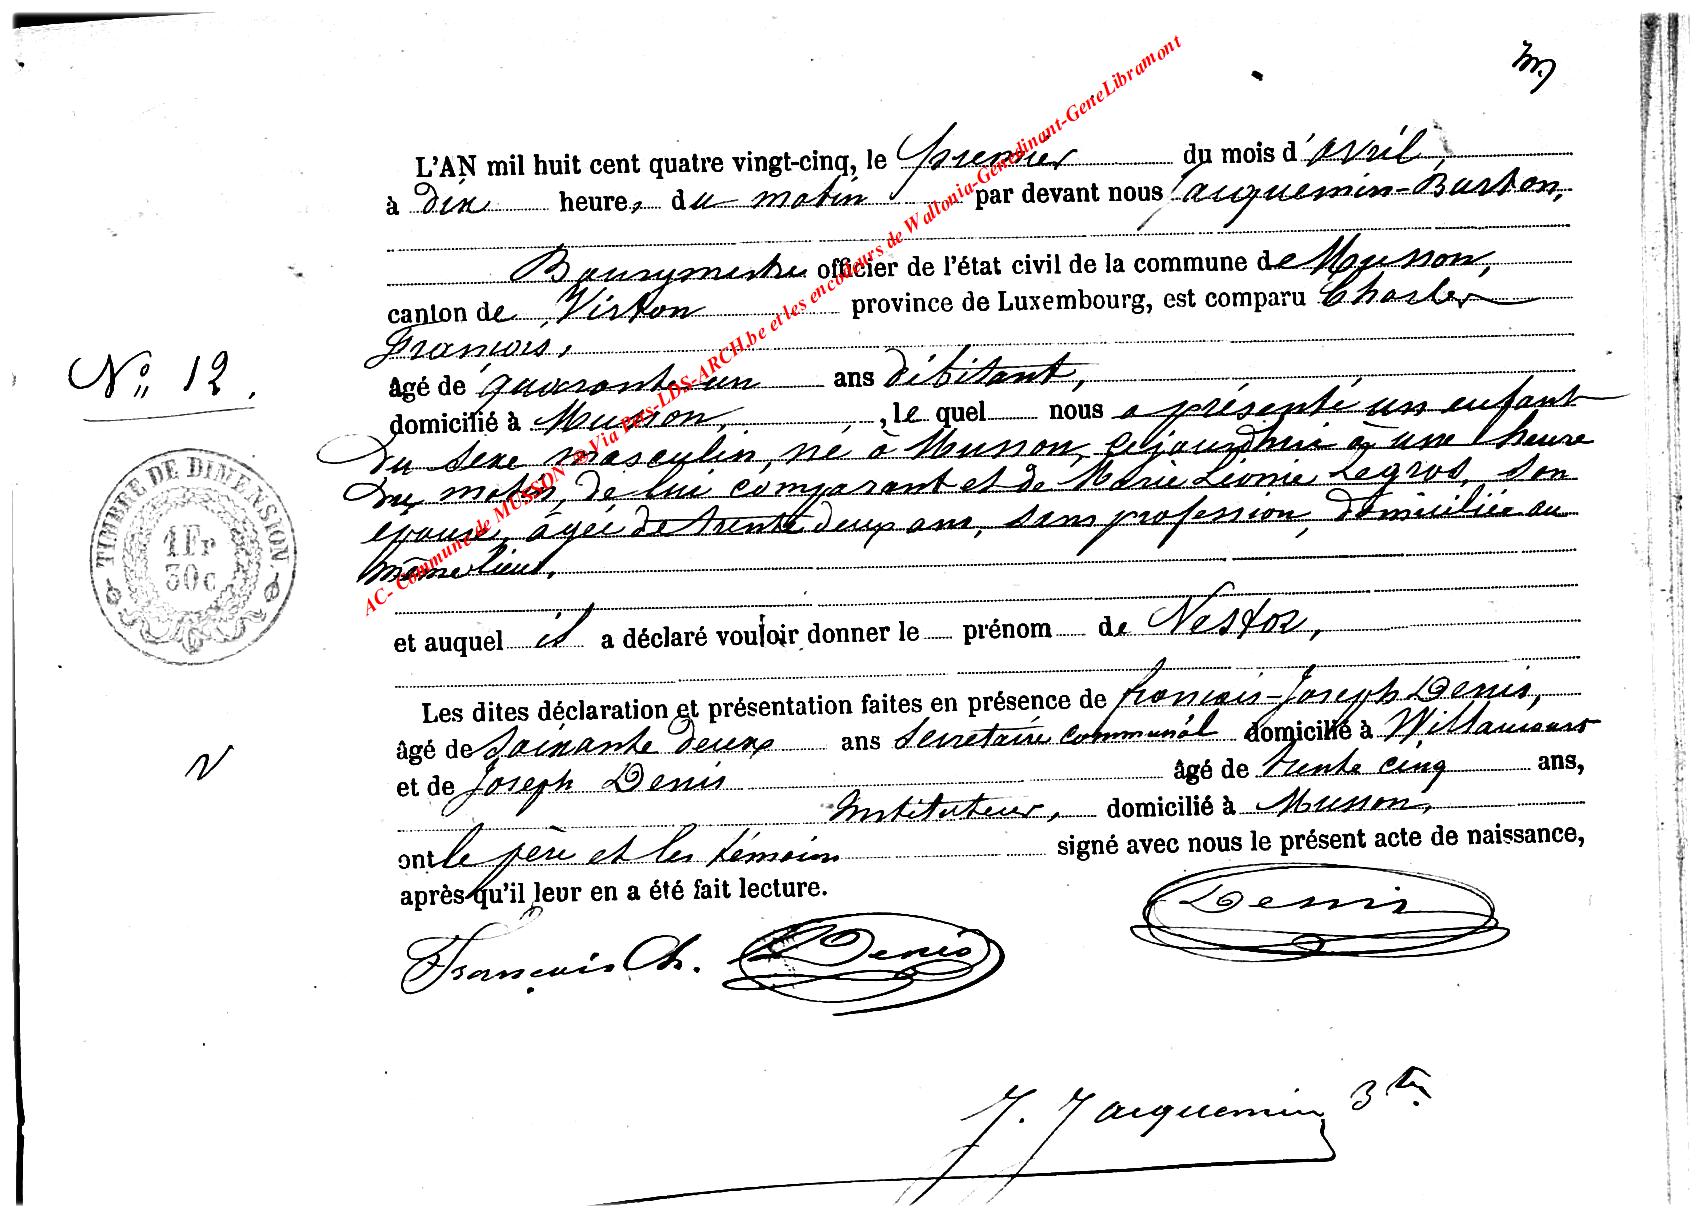 L'AN mil huit cent quatre vingt-cinq, le premier du mois d'avril,
à dix heures, du matin par devant nous Jacquemin-Burton,
Bourgmestre officier de l'état civil de la commune de Musson,
canton de Virton province de Luxembourg, est comparu Charles
François,
âgé de quarante-un ans débitant,
domicilié à Musson, , le quel nous a présenté un enfant
N° 12.
du sexe masculin, né à Musson, cejourdhui à une heure
du matin, de lui comparant et de Marie Léonie Legros, son
épouse, âgée de trente deux ans, sans profession, domiciliée au
même lieu.
TIMBRE DE DIMENSION
1 Fr
30 c
et auquel il a déclaré vouloir donner le prénom de Nestor,
Les dites déclaration et présentation faites en présence de françois-Joseph Denis,
âgé de soixante deux ans secrétaire communal domicilié à Willancourt
et de Joseph Denis âgé de trente cinq ans,
Instituteur, domicilié à Musson,
ont le père et les témoins signé avec nous le présent acte de naissance,
après qu'il leur en a été fait lecture.
François Ch. Denis Denis
J. Jacquemin
AC- Commune de MUSSON Via Pas-LDS-ARCH.be et les encodeurs de Wallonia-Genedinant-GeneLibramont